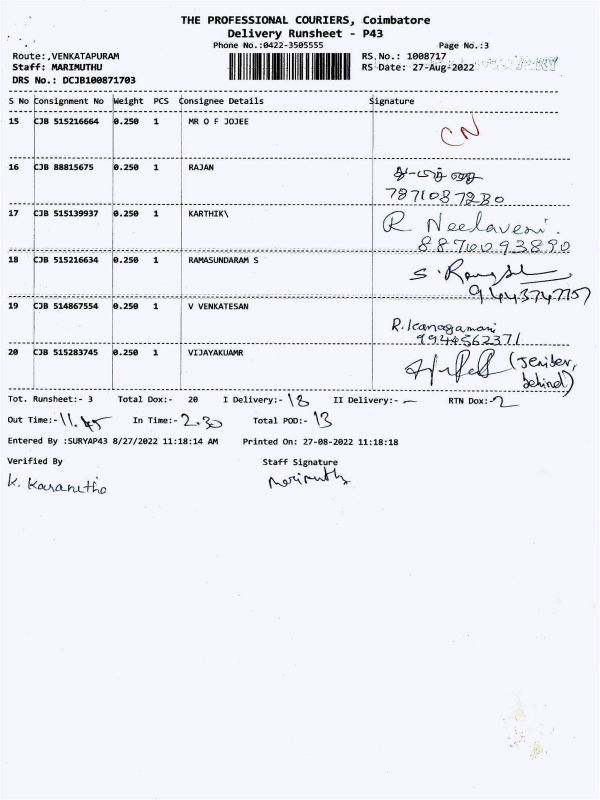 THE PROFESSIONAL COURIERS, Coimbatore
Delivery Runsheet - P43
Phone No.:0422-3505555 Page No.:3
Route:,VENKATAPURAM RS.No.: 1008717
Staff: MARIMUTHU RS-Date: 27-Aug-2022
DRS No.: DCJB100871703
S No Consignment No Weight PCS Consignee Details Signature
15 CJB 515216664 0.250 1 MR O F JOJEE CN
16 CJB 88815675 0.250 1 RAJAN
7871087280
17 CJB 515139937 0.250 1 KARTHIK\ R Neelaveni.
8870093890
18 CJB 515216634 0.250 1 RAMASUNDARAM S
9443747757
19 CJB 514867554 0.250 1 V VENKATESAN R. Kanagamani
9944562371
20 CJB 515283745 0.250 1 VIJAYAKUAMR (Jeniber,
behind)
Tot. Runsheet:- 3 Total Dox:- 20 I Delivery:- 18 II Delivery:- – RTN Dox:- 2
Out Time:- 11.45 In Time:- 2.30 Total POD:- 13
Entered By :SURYAP43 8/27/2022 11:18:14 AM Printed On: 27-08-2022 11:18:18
Verified By Staff Signature
K. Karanitha Marimuthu